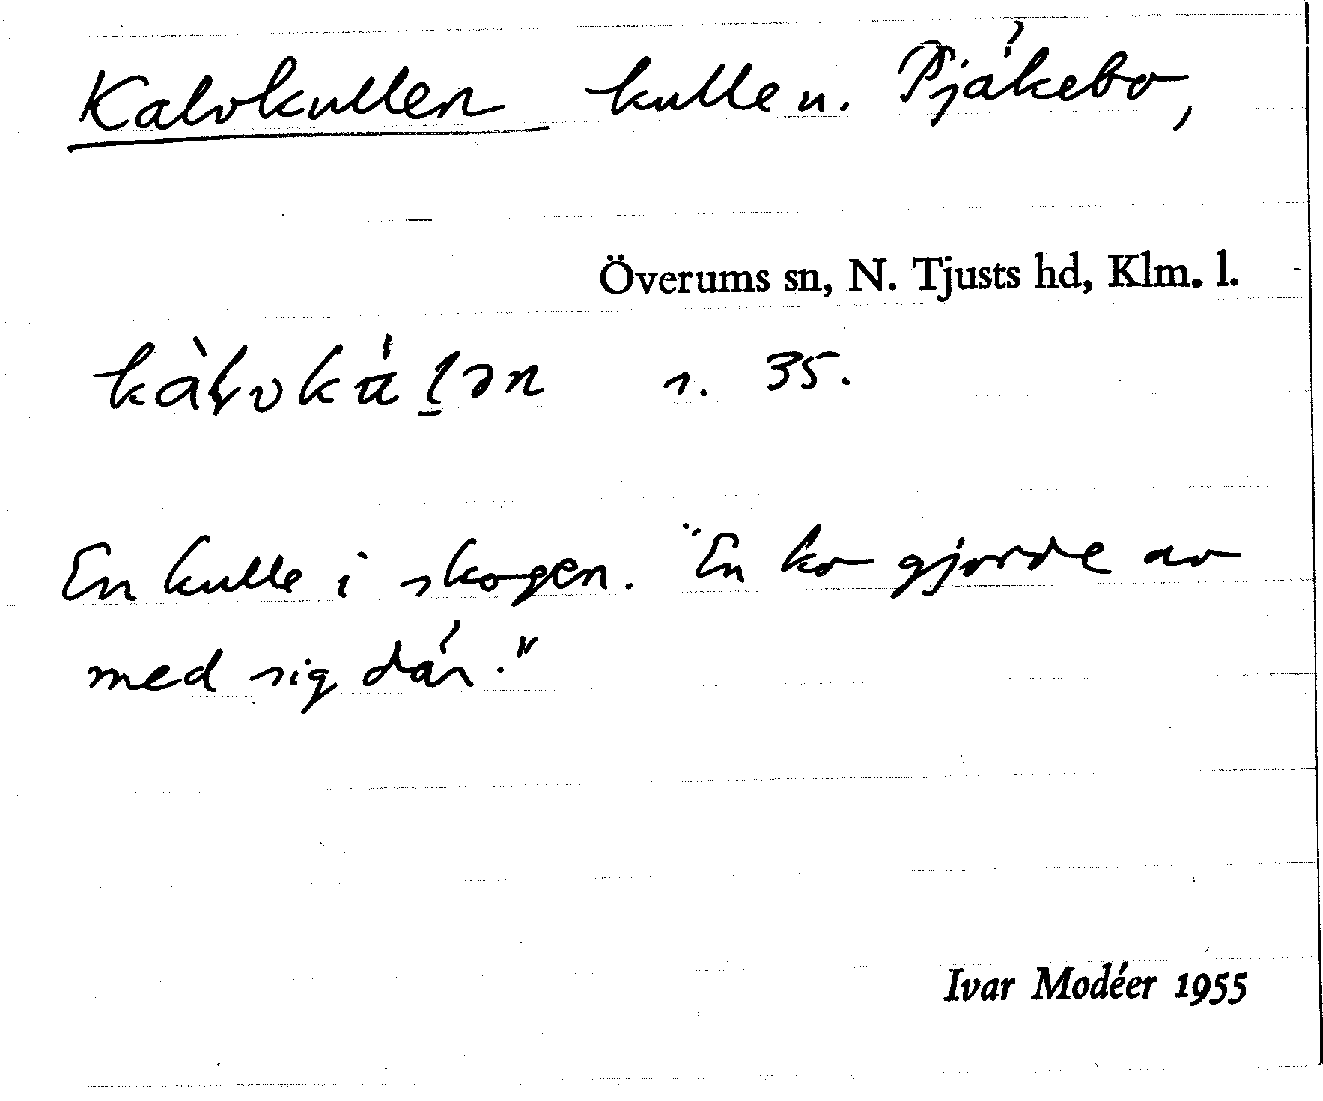 Kalvkullen kulle u. Pjäkebo,
Överums sn, N. Tjusts hd, Klm. l.
s. 35.
En kulle i skogen. "En ko gjorde av
med sig där."
Ivar Modéer 1955